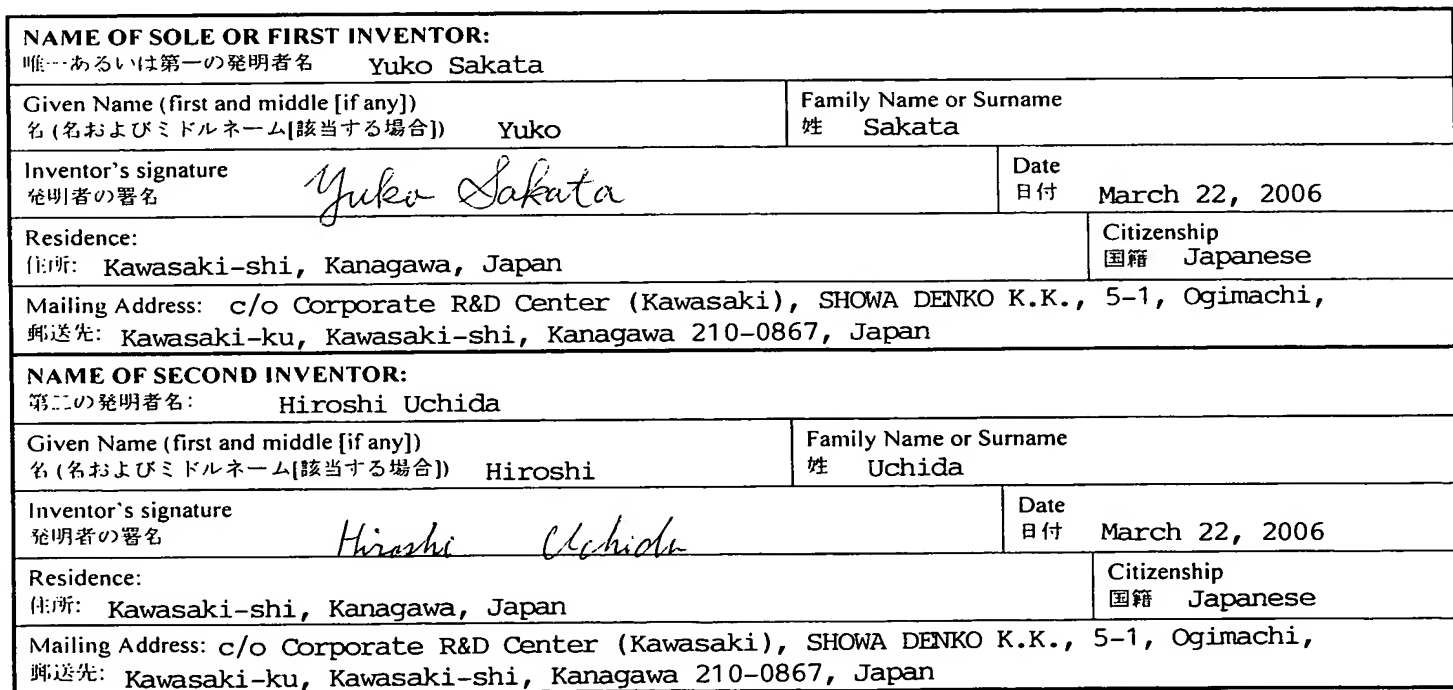 NAME OF SOLE OR FIRST INVENTOR:
唯一あるいは第一の発明者名 Yuko Sakata
Given Name (first and middle [if any])
名 (名およびミドルネーム[該当する場合]) Yuko
Family Name or Surname
姓 Sakata
Inventor's signature
発明者の署名 Yuko Sakata
Date
日付 March 22, 2006
Residence:
住所: Kawasaki-shi, Kanagawa, Japan
Citizenship
国籍 Japanese
Mailing Address: c/o Corporate R&D Center (Kawasaki), SHOWA DENKO K.K., 5-1, Ogimachi,
郵送先: Kawasaki-ku, Kawasaki-shi, Kanagawa 210-0867, Japan
NAME OF SECOND INVENTOR:
第二の発明者名: Hiroshi Uchida
Given Name (first and middle [if any])
名 (名およびミドルネーム[該当する場合]) Hiroshi
Family Name or Surname
姓 Uchida
Inventor's signature
発明者の署名 Hiroshi Uchida
Date
日付 March 22, 2006
Residence:
住所: Kawasaki-shi, Kanagawa, Japan
Citizenship
国籍 Japanese
Mailing Address: c/o Corporate R&D Center (Kawasaki), SHOWA DENKO K.K., 5-1, Ogimachi,
郵送先: Kawasaki-ku, Kawasaki-shi, Kanagawa 210-0867, Japan